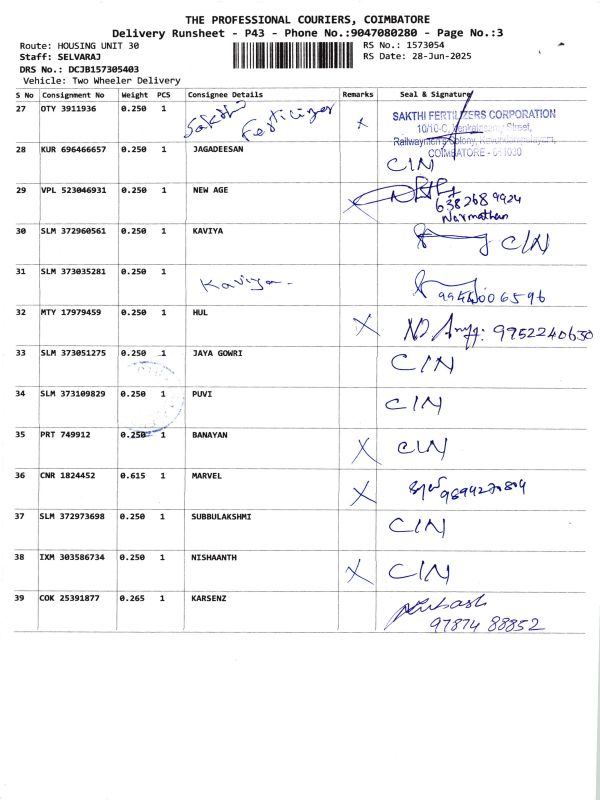 THE PROFESSIONAL COURIERS, COIMBATORE
Delivery Runsheet - P43 - Phone No.:9047080280 - Page No.:3
Route: HOUSING UNIT 30 RS No.: 1573054
Staff: SELVARAJ RS Date: 28-Jun-2025
DRS No.: DCJB157305403
Vehicle: Two Wheeler Delivery
S No Consignment No Weight PCS Consignee Details Remarks Seal & Signature
27 OTY 3911936 0.250 1 Sakthi Fertilizer X
SAKTHI FERTILIZERS CORPORATION
10/10-C, Street,
Railwaymen's Colony,
COIMBATORE - 641030
28 KUR 696466657 0.250 1 JAGADEESAN C/N
29 VPL 523046931 0.250 1 NEW AGE X 638268 9924
Narmatha
30 SLM 372960561 0.250 1 KAVIYA C/N
31 SLM 373035281 0.250 1 Kaviya 9944006596
32 MTY 17979459 0.250 1 HUL X 9952240630
33 SLM 373051275 0.250 1 JAYA GOWRI C/N
34 SLM 373109829 0.250 1 PUVI C/N
35 PRT 749912 0.250 1 BANAYAN X C/N
36 CNR 1824452 0.615 1 MARVEL X 9894270804
37 SLM 372973698 0.250 1 SUBBULAKSHMI C/N
38 IXM 303586734 0.250 1 NISHAANTH X C/N
39 COK 25391877 0.265 1 KARSENZ
97874 88852